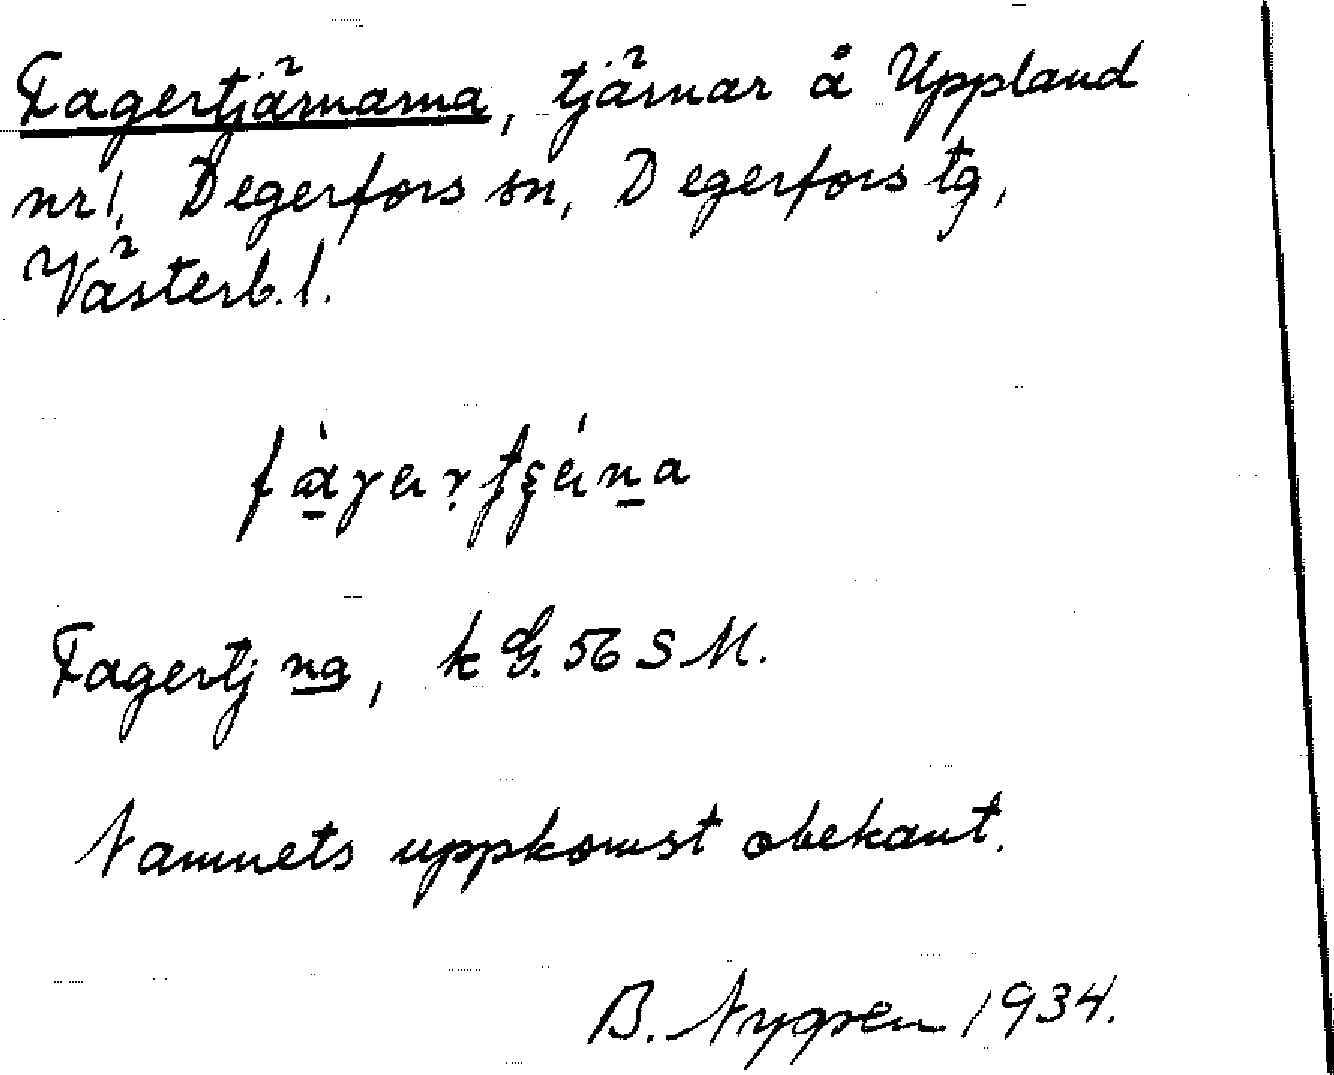 Fagertjärnarna, tjärnar å Uppland
nr 1, Degerfors sn, Degerfors tg,
Västerb. l.
Fagertj na, k G. 56 S M.
Namnets uppkomst obekant.
B. Nygren 1934.